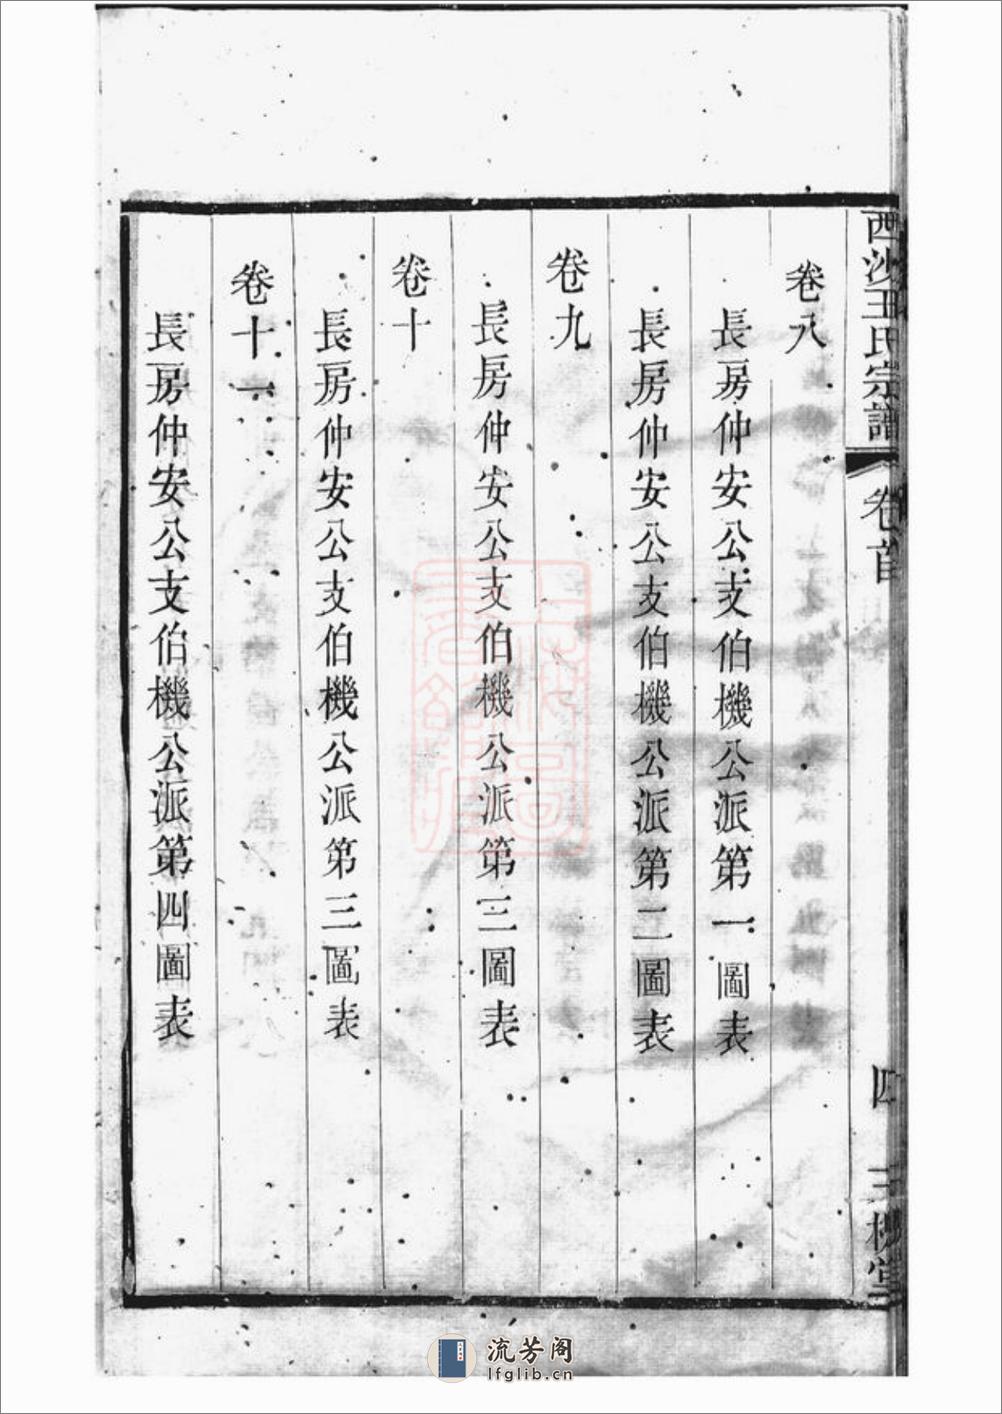 西沙王氏宗譜 卷首 四 三槐堂
卷八
長房仲安公支伯機公派第一圖表
長房仲安公支伯機公派第二圖表
卷九
長房仲安公支伯機公派第三圖表
卷十
長房仲安公支伯機公派第三圖表
卷十一
長房仲安公支伯機公派第四圖表
流芳阁
lfglib.cn